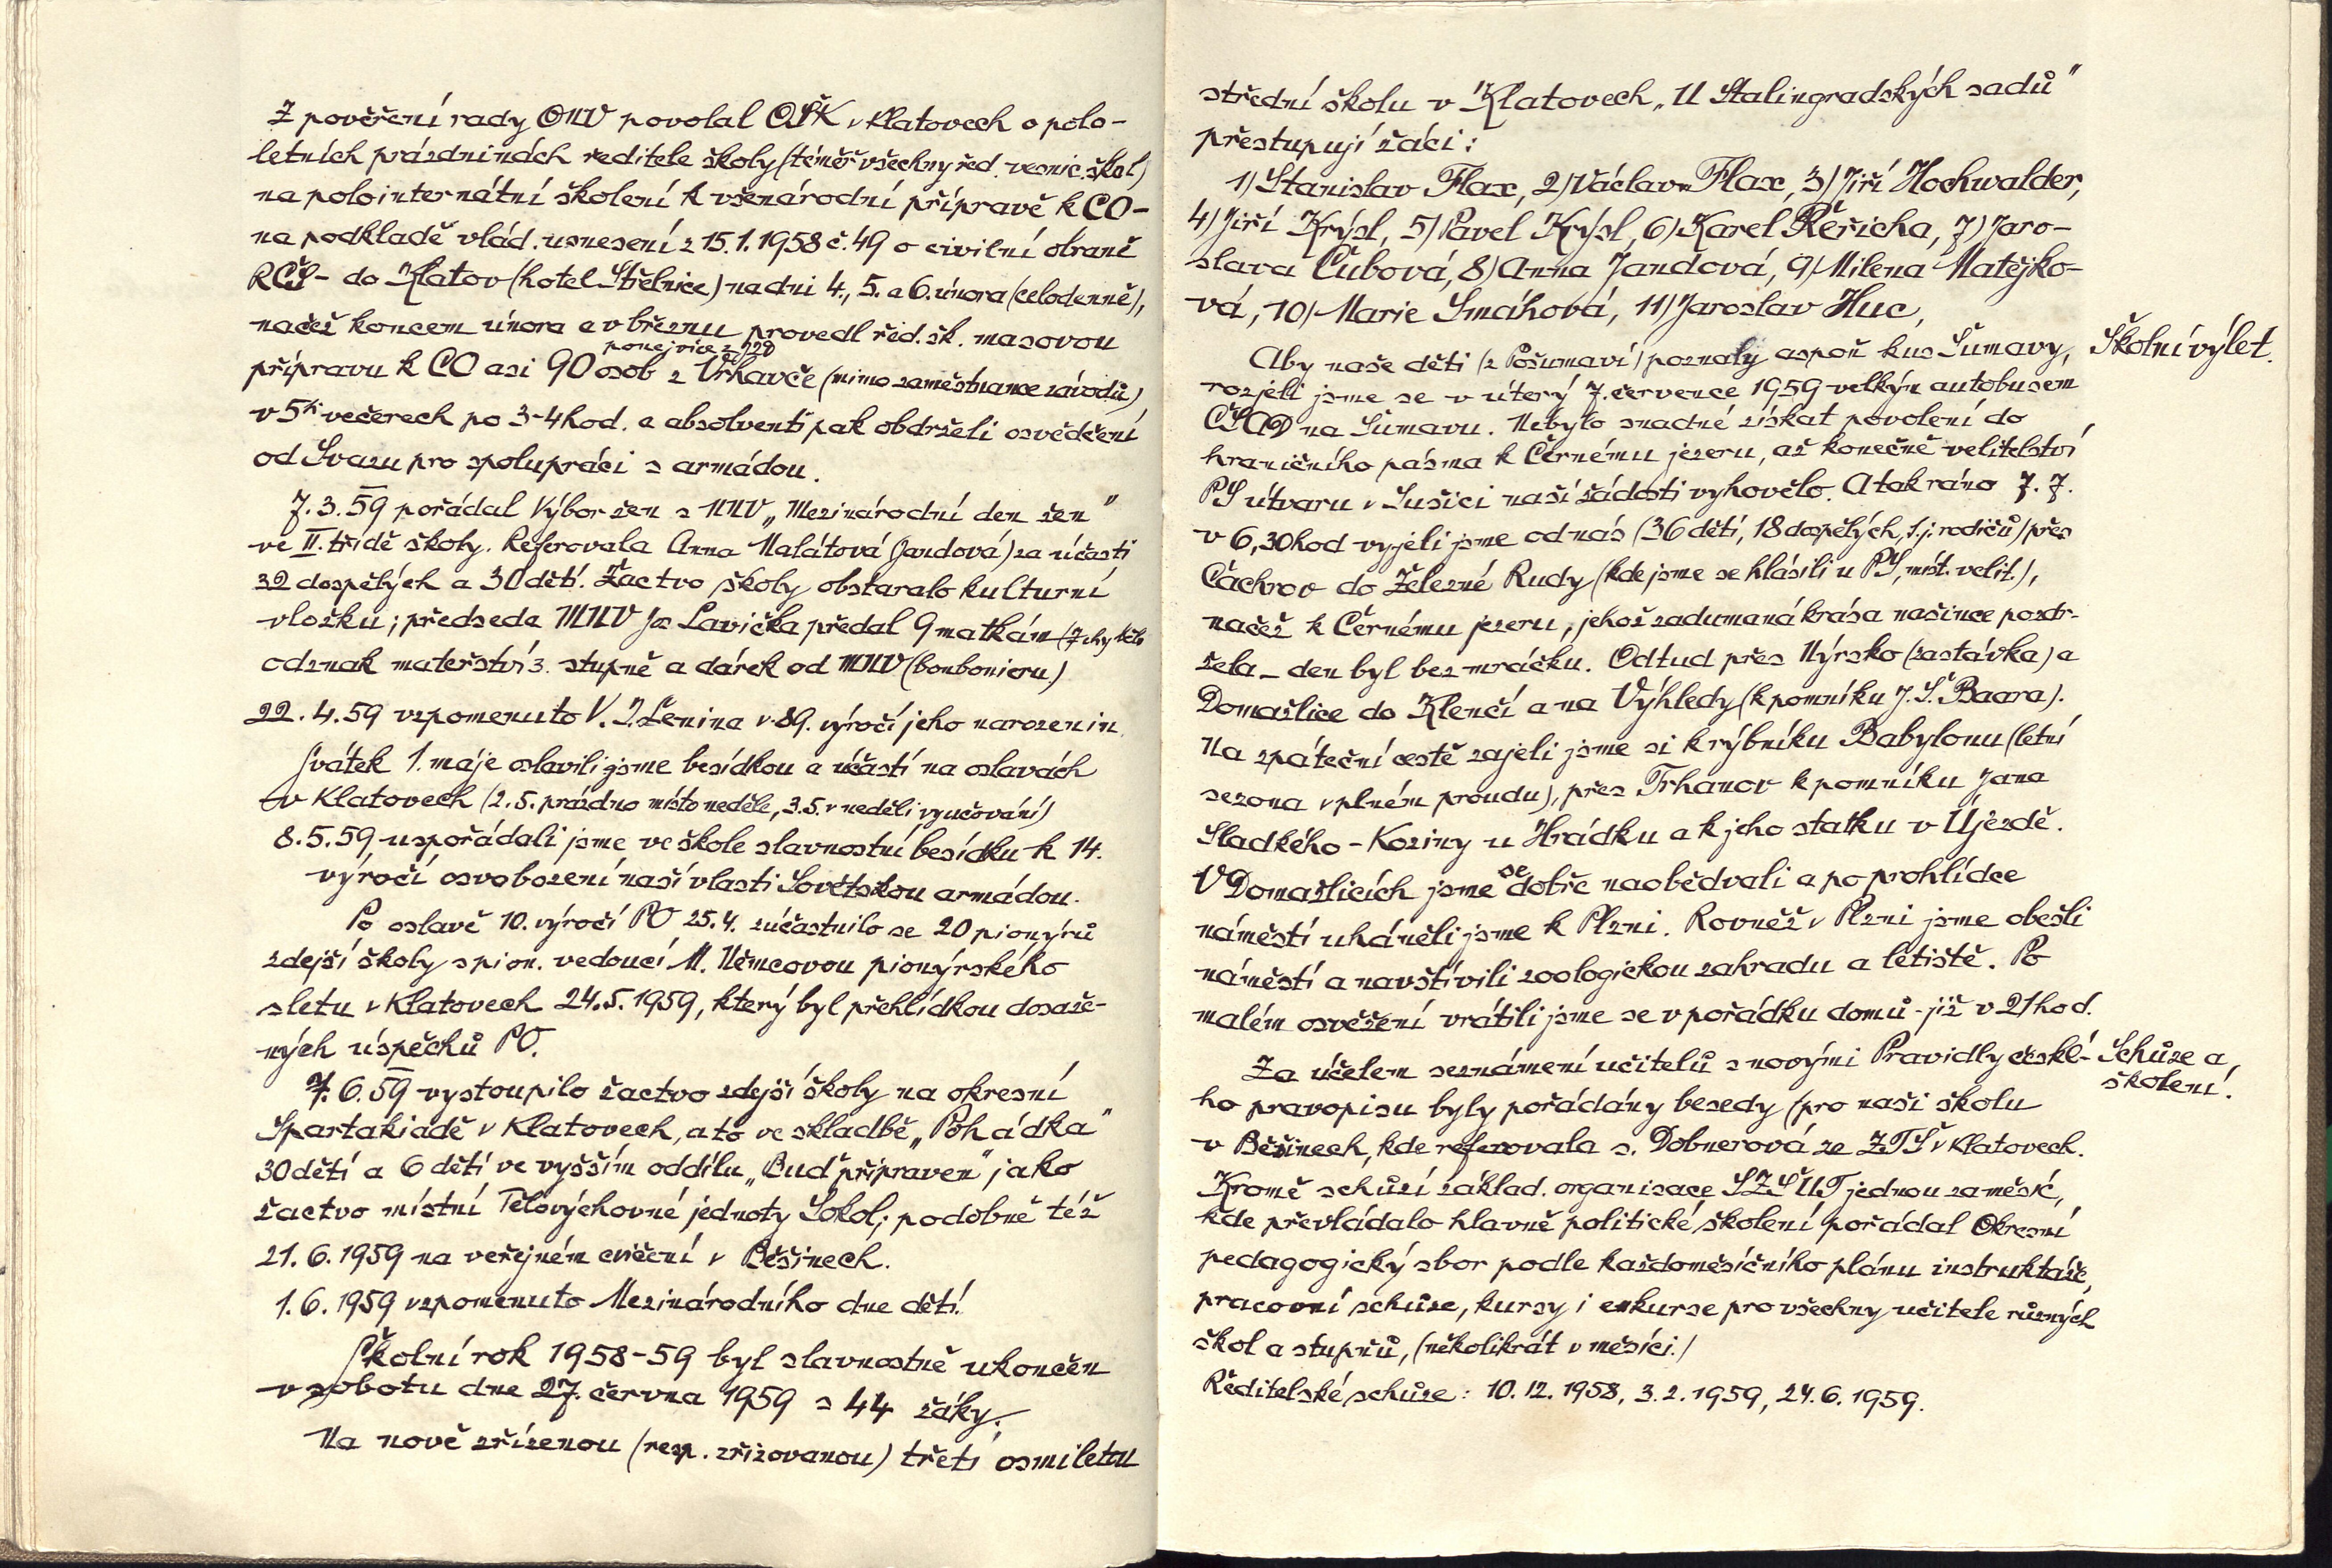 Z pověření rady ONV povolal OŠK v Klatovech o polo-
letních prázdninách ředitele školy (téměř všechny řed. vesnic. škol)
na polointernátní školení k všenárodní přípravě k CO -
na podkladě vlád. usnesení z 15.1.1958 č. 49 o civilní obraně
RČS - do Klatov (hotel Střelnice) na dni 4., 5. a 6. února (celodenně),
načež koncem února a v březnu provedl řed. šk. masovou
ponejvíce z JZD
přípravu k CO asi 90 osob z Vrhavče (mimo zaměstnance závodů)
v 5ti večerech po 3-4 hod. a absolventi pak obdrželi osvědčení
od Svazu pro spolupráci s armádou.
7.3.59 pořádal Výbor žen s MNV „Mezinárodní den žen"
ve II. třídě školy. Referovala Anna Malátová (Jandová) za účasti
32 dospělých a 30 dětí. Žactvo školy obstaralo kulturní
vložku; předseda MNV Ja Lavička předal 9 matkám
odznak mateřství 3. stupně a dárek od MNV (bonbonieru)
22.4.59 vzpomenuto V. I. Lenina v 89. výročí jeho narozenin.
Svátek 1. máje oslavili jsme besídkou a účastí na oslavách
v Klatovech (2.5. prázdno místo neděle, 3.5. v neděli vyučování)
8.5.59 uspořádali jsme ve škole slavnostní besídku k 14.
výročí osvobození naší vlasti Sovětskou armádou.
Po oslavě 10. výročí PO 25.4. zúčastnilo se 20 pionýrů
zdejší školy s pion. vedoucí M. Němcovou pionýrského
sletu v Klatovech 24.5.1959, který byl přehlídkou dosaže-
ných úspěchů PO.
7.6.59 vystoupilo žactvo zdejší školy na okresní
Spartakiádě v Klatovech, a to ve skladbě „Pohádka"
30 dětí a 6 dětí ve vyšším oddílu „Buď připraven" jako
žactvo místní Tělovýchovné jednoty Sokol; podobně též
21.6.1959 na veřejném cvičení v Běšinech.
1.6.1959 vzpomenuto Mezinárodního dne dětí.
Školní rok 1958-59 byl slavnostně ukončen
v sobotu dne 27. června 1959 s 44 žáky.
Na nově zřízenou (resp. zřizovanou) třetí osmiletou
střední školu v Klatovech „U Stalingradských sadů"
přestupují žáci:
1) Stanislav Flax, 2) Václav Flax, 3) Jiří Hochwalder,
4) Jiří Krýsl, 5) Pavel Krýsl, 6) Karel Řeřicha, 7) Jaro-
slava Čubová, 8) Anna Jandová, 9) Milena Matějko-
vá, 10) Marie Smáhová, 11) Jaroslav Huc,
Školní výlet.
Aby naše děti (z Pošumaví) poznaly aspoň kus Šumavy,
rozjeli jsme se v úterý 7. července 1959 velkým autobusem
ČSAD na Šumavu. Nebylo snadné získat povolení do
hraničního pásma k Černému jezeru, až konečně velitelství
PS útvaru v Sušici naší žádosti vyhovělo. A tak ráno 7.7.
v 6,30 hod vyjeli jsme od nás (36 dětí, 18 dospělých, t.j. rodičů) přes
Čachrov do Železné Rudy (kde jsme se hlásili u PS, míst. velit.),
načež k Černému jezeru, jehož zadumaná krása našince pozdr-
žela - den byl bez mráčku. Odtud přes Nýrsko (zastávka) a
Domažlice do Klenčí a na Výhledy (k pomníku J. Š. Baara).
Na zpáteční cestě zajeli jsme si k rybníku Babylonu (letní
sezona v plném proudu), přes Trhanov k pomníku Jana
Sladkého - Koziny u Hrádku a k jeho statku v Újezdě.
V Domažlicích jsme se dobře naobědvali a po prohlídce
náměstí uháněli jsme k Plzni. Rovněž v Plzni jsme obešli
náměstí a navštívili zoologickou zahradu a letiště. Po
malém osvěžení vrátili jsme se v pořádku domů - již v 21 hod.
Schůze a
školení.
Za účelem seznámení učitelů s novými Pravidly české-
ho pravopisu byly pořádány besedy (pro naši školu
v Běšinech, kde referovala s. Dobnerová ze ZTŠ v Klatovech.
Kromě schůzí základ. organisace SZŠUT jednou za měsíc,
kde převládalo hlavně politické školení pořádal Okresní
pedagogický sbor podle každoměsíčního plánu instruktáže,
pracovní schůze, kursy i exkurse pro všechny učitele různých
škol a stupňů, (několikrát v měsíci.)
Ředitelské schůze: 10.12.1958, 3.2.1959, 24.6.1959.